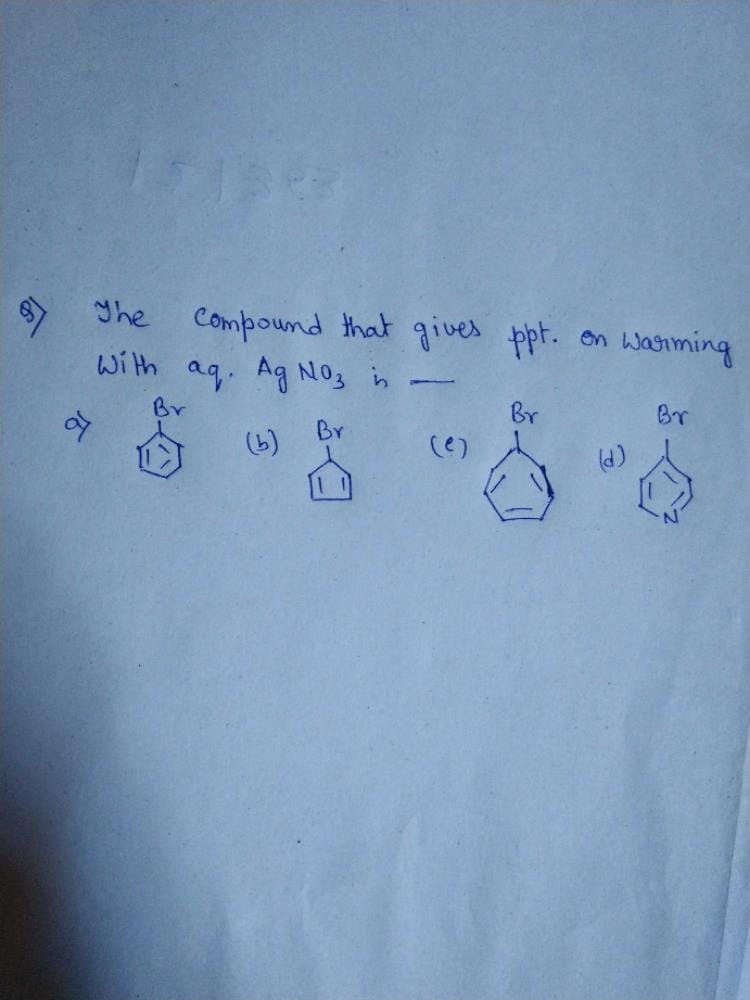 8) The compound that gives ppt. on warming
With aq. AgNO3 is —
a) Br (b) Br (c) Br (d) Br
N